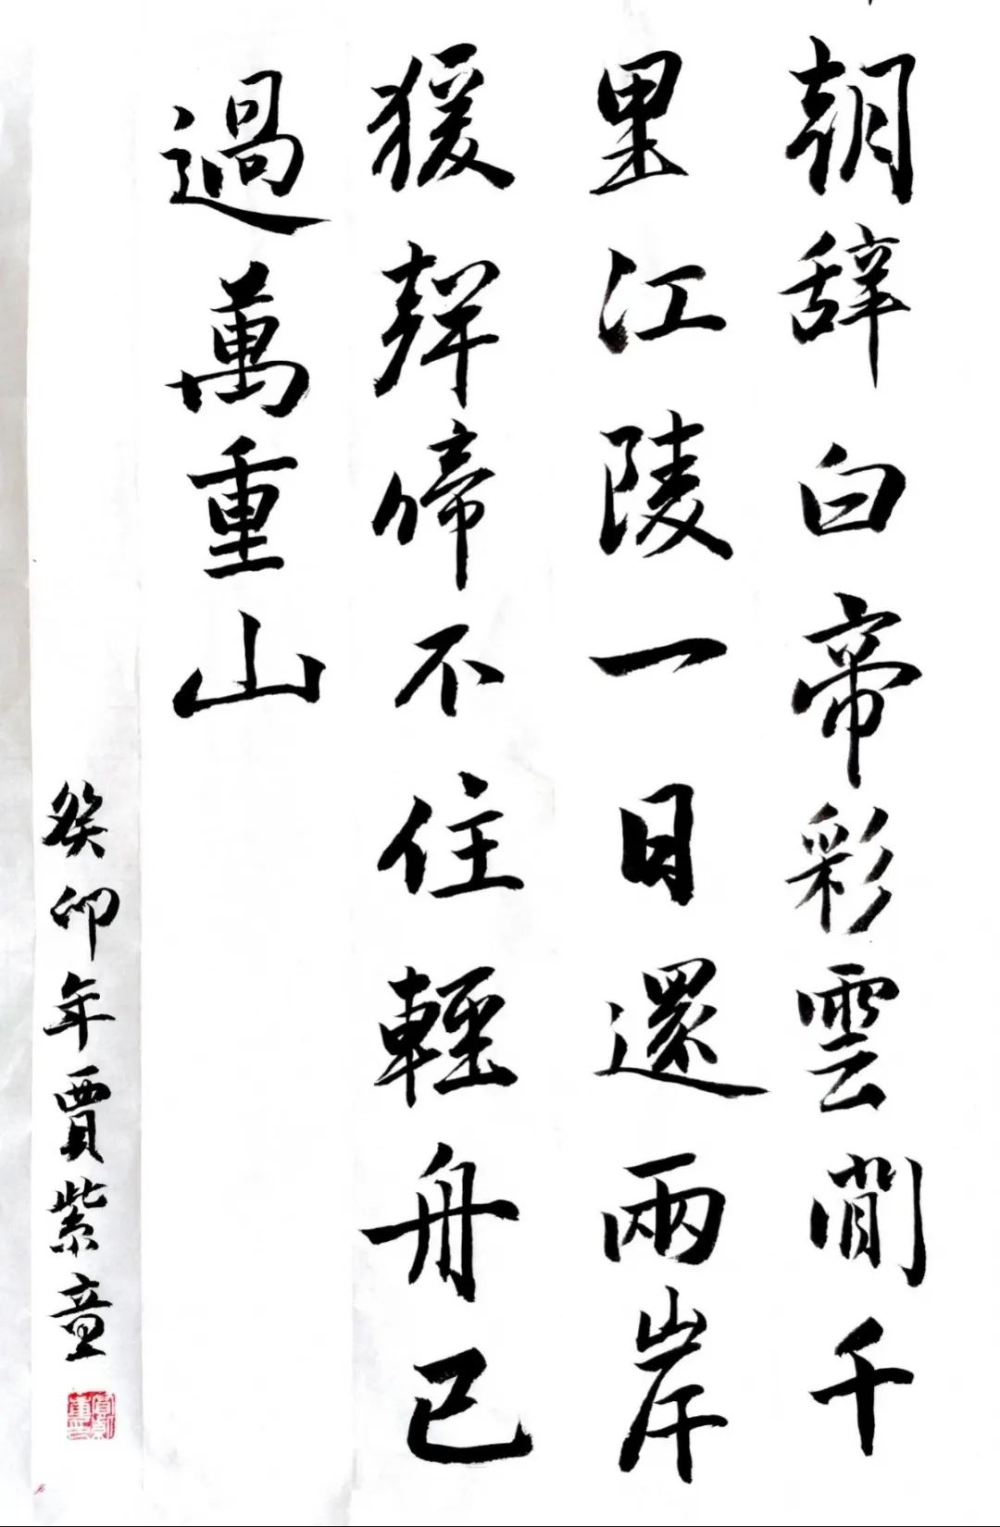 朝辞白帝彩雲間千
里江陵一日還兩岸
猨聲啼不住輕舟已
過萬重山
癸卯年賈紫童